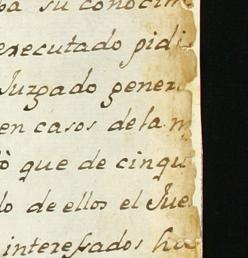 pa su conocim
executado pidi
Juzgado genera
en casos de la m
ò que de cinqu
lo de ellos el Jue
interessados ha